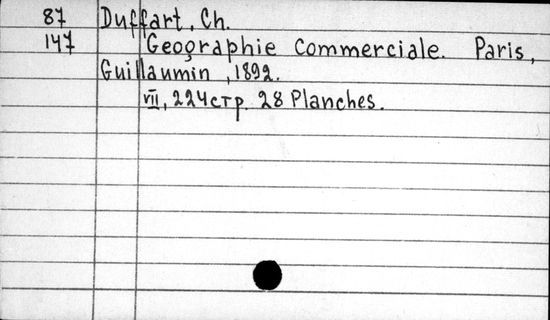 87 Duffart, Ch.
147 Geographie Commerciale. Paris,
Guillaumin, 1892.
VII, 224 стр. 28 Planches.